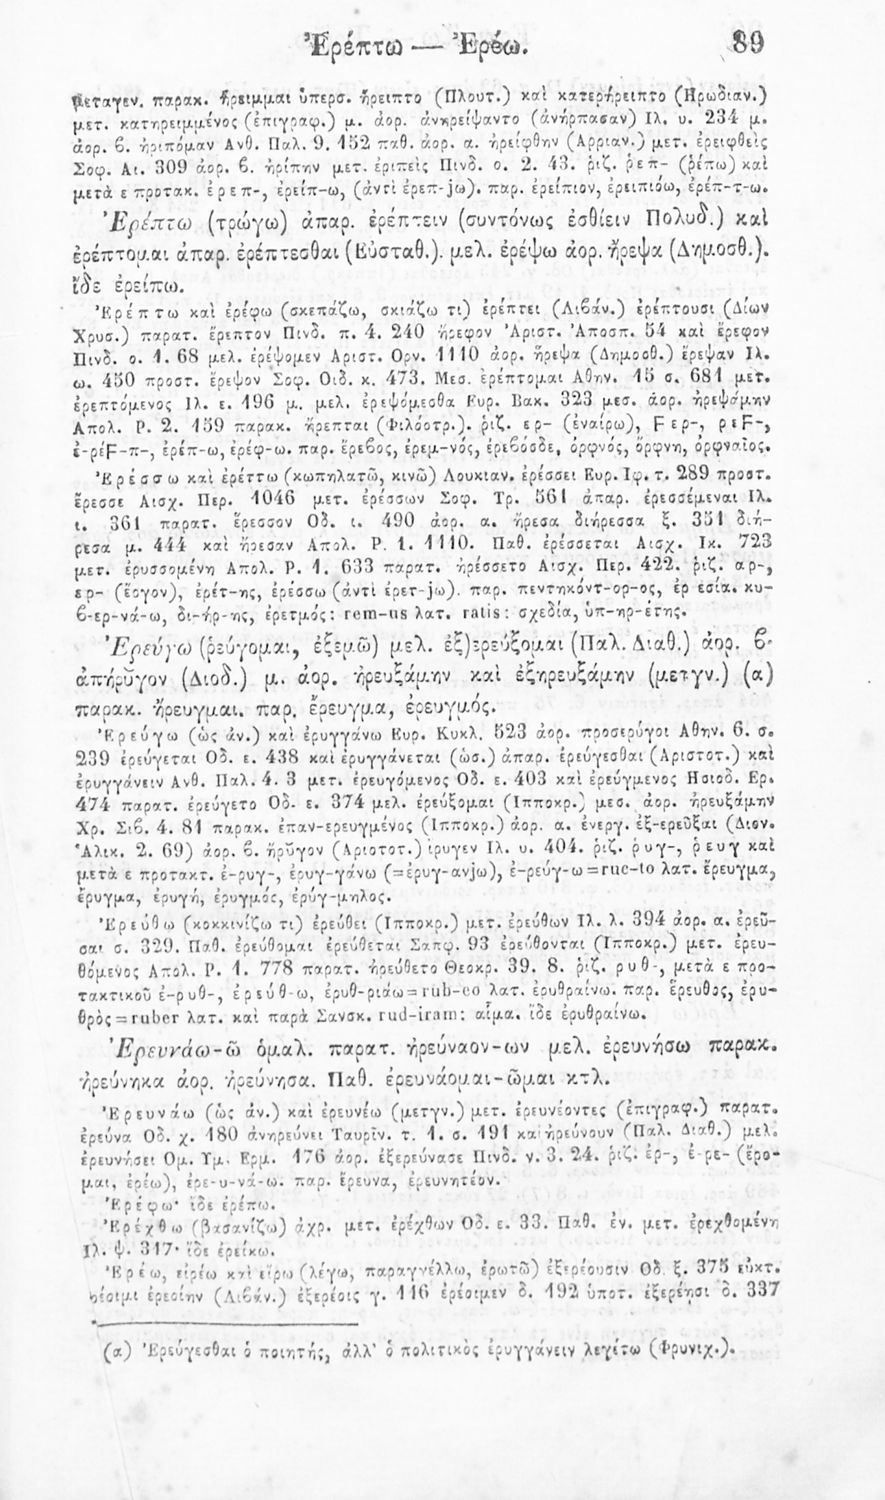 Ἐρέπτω — Ἐρέω. 89
μεταγεν. παρακ. ἤρειμμαι ὑπερσ. ἤρειπτο (Πλουτ.) καὶ κατερήρειπτο (Ηρωδιαν.)
μετ. κατηρειμμένος (ἐπιγραφ.) μ. ἀορ. ἀνηρείψαντο (ἀνήρπασαν) Ιλ. υ. 234 μ.
ἀορ. β. ἠριπόμαν Ανθ. Παλ. 9. 152 παθ. ἀορ. α. ἠρείφθην (Αρριαν.) μετ. ἐρειφθεὶς
Σοφ. Αι. 309 ἀορ. β. ἠρίπην μετ. ἐριπεὶς Πινδ. ο. 2. 43. ῥιζ. ῥεπ- (ῥέπω) καὶ
μετὰ ε προτακ. ἐρεπ-, ἐρείπ-ω, (ἀντὶ ἐρεπ-jω). παρ. ἐρείπιον, ἐρειπιόω, ἐρέπ-τ-ω.
Ἐρέπτω (τρώγω) ἀπαρ. ἐρέπτειν (συντόνως ἐσθίειν Πολυδ.) καὶ
ἐρέπτομαι ἀπαρ. ἐρέπτεσθαι (Εὐσταθ.). μελ. ἐρέψω ἀορ. ἤρεψα (Δημοσθ.).
ἴδε ἐρείπω.
Ἐρέπτω καὶ ἐρέφω (σκεπάζω, σκιάζω τι) ἐρέπτει (Λιβάν.) ἐρέπτουσι (Δίων
Χρυσ.) παρατ. ἔρεπτον Πινδ. π. 4. 240 ἤρεφον Ἀριστ. Ἀποσπ. 54 καὶ ἔρεφον
Πινδ. ο. 1. 68 μελ. ἐρέψομεν Αριστ. Ορν. 1110 ἀορ. ἤρεψα (Δημοσθ.) ἔρεψαν Ιλ.
ω. 450 προστ. ἔρεψον Σοφ. Οιδ. κ. 473. Μεσ. ἐρέπτομαι Αθην. 15 σ. 681 μετ.
ἐρεπτόμενος Ιλ. ε. 196 μ. μελ. ἐρεψόμεσθα Ευρ. Βακ. 323 μεσ. ἀορ. ἠρεψάμην
Απολ. Ρ. 2. 159 παρακ. ἤρεπται (Φιλόστρ.). ῥιζ. ερ- (ἐναίρω), Fερ-, ρεF-,
ἐ-ρέF-π-, ἐρέπ-ω, ἐρέφ-ω. παρ. ἔρεβος, ἐρεμ-νός, ἐρεβόσδε, ὀρφνός, ὄρφνη, ὀρφναῖος.
Ἐρέσσω καὶ ἐρέττω (κωπηλατῶ, κινῶ) Λουκιαν. ἐρέσσει Ευρ. Ιφ. τ. 289 προστ.
ἔρεσσε Αισχ. Περ. 1046 μετ. ἐρέσσων Σοφ. Τρ. 561 ἀπαρ. ἐρεσσέμεναι Ιλ.
ι. 361 παρατ. ἔρεσσον Οδ. ι. 490 ἀορ. α. ἤρεσα διήρεσσα ξ. 351 διή-
ρεσα μ. 444 καὶ ἤρεσαν Απολ. Ρ. 1. 1110. Παθ. ἐρέσσεται Αισχ. Ικ. 723
μετ. ἐρυσσομένη Απολ. Ρ. 1. 633 παρατ. ἠρέσσετο Αισχ. Περ. 422. ῥιζ. αρ-,
ερ- (ἔργον), ἐρέτ-ης, ἐρέσσω (ἀντὶ ἐρετ-jω). παρ. πεντηκόντ-ορ-ος, ἐρεσία. κυ-
β-ερ-νά-ω, δι-ήρ-ης, ἐρετμός: rem-us λατ. ratis: σχεδία, ὑπ-ηρ-έτης.
Ἐρεύγω (ῥεύγομαι, ἐξεμῶ) μελ. ἐξ)ερεύξομαι (Παλ. Διαθ.) ἀορ. β·
ἀπήρῠγον (Διοδ.) μ. ἀορ. ἠρευξάμην καὶ ἐξηρευξάμην (μετγν.) (α)
παρακ. ἤρευγμαι. παρ. ἔρευγμα, ἐρευγμός.
Ἐρεύγω (ὡς ἀν.) καὶ ἐρυγγάνω Ευρ. Κυκλ. 523 ἀορ. προσερύγοι Αθην. 6. σ.
239 ἐρεύγεται Οδ. ε. 438 καὶ ἐρυγγάνεται (ὡσ.) ἀπαρ. ἐρεύγεσθαι (Αριστοτ.) καὶ
ἐρυγγάνειν Ανθ. Παλ. 4. 3 μετ. ἐρευγόμενος Οδ. ε. 403 καὶ ἐρεύγμενος Ησιοδ. Ερ.
474 παρατ. ἐρεύγετο Οδ. ε. 374 μελ. ἐρεύξομαι (Ιπποκρ.) μεσ. ἀορ. ἠρευξάμην
Χρ. Σιβ. 4. 81 παρακ. ἐπαν-ερευγμένος (Ιπποκρ.) ἀορ. α. ἐνεργ. ἐξ-ερεῦξαι (Διον.
Ἁλικ. 2. 69) ἀορ. β. ἤρῠγον (Αριστοτ.) ἤρυγεν Ιλ. υ. 404. ῥιζ. ρυγ-, ρευγ καὶ
μετὰ ε προτακτ. ἐ-ρυγ-, ἐρυγ-γάνω (=ἐρυγ-ανjω), ἐ-ρεύγ-ω=ruc-to λατ. ἔρευγμα,
ἔρυγμα, ἐρυγή, ἐρυγμός, ἐρύγ-μηλος.
Ἐρεύθω (κοκκινίζω τι) ἐρεύθει (Ιπποκρ.) μετ. ἐρεύθων Ιλ. λ. 394 ἀορ. α. ἐρεῦ-
σαι σ. 329. Παθ. ἐρεύθομαι ἐρεύθεται Σαπφ. 93 ἐρεύθονται (Ιπποκρ.) μετ. ἐρευ-
θόμενος Απολ. Ρ. 1. 778 παρατ. ἠρεύθετο Θεοκρ. 39. 8. ῥιζ. ρυθ-, μετὰ ε προ-
τακτικοῦ ἐ-ρυθ-, ἐρεύθ-ω, ἐρυθ-ριάω=rub-eo λατ. ἐρυθραίνω. παρ. ἔρευθος, ἐρυ-
θρὸς=ruber λατ. καὶ παρὰ Σανσκ. rud-iram: αἷμα. ἴδε ἐρυθραίνω.
Ἐρευνάω-ῶ ὁμαλ. παρατ. ἠρεύναον-ων μελ. ἐρευνήσω παρακ.
ἠρεύνηκα ἀορ. ἠρεύνησα. Παθ. ἐρευνάομαι-ῶμαι κτλ.
Ἐρευνάω (ὡς ἀν.) καὶ ἐρευνέω (μετγν.) μετ. ἐρευνέοντες (ἐπιγραφ.) παρατ.
ἐρεύνα Οδ. χ. 180 ἀνηρεύνει Ταυρῖν. τ. 1. σ. 191 καὶ ἠρεύνουν (Παλ. Διαθ.) μελ.
ἐρευνήσει Ομ. Υμ. Ερμ. 176 ἀορ. ἐξερεύνασε Πινδ. ν. 3. 24. ῥιζ. ἐρ-, ἐ-ρε- (ἔρο-
μαι, ἐρέω), ἐρε-υ-νά-ω. παρ. ἔρευνα, ἐρευνητέον.
Ἐρέφω· ἴδε ἐρέπω.
Ἐρέχθω (βασανίζω) ἀχρ. μετ. ἐρέχθων Οδ. ε. 33. Παθ. ἐν. μετ. ἐρεχθομένη
Ιλ. ψ. 317· ἴδε ἐρείκω.
Ἐρέω, εἰρέω καὶ εἴρω (λέγω, παραγγέλλω, ἐρωτῶ) ἐξερέουσιν Οδ. ξ. 375 εὐκτ.
ἐρέοιμι ἐρεοίην (Λιβάν.) ἐξερέοις γ. 116 ἐρέοιμεν δ. 192 ὑποτ. ἐξερέησι δ. 337
(α) Ἐρεύγεσθαι ὁ ποιητής, ἀλλ' ὁ πολιτικὸς ἐρυγγάνειν λεγέτω (Φρυνιχ.).